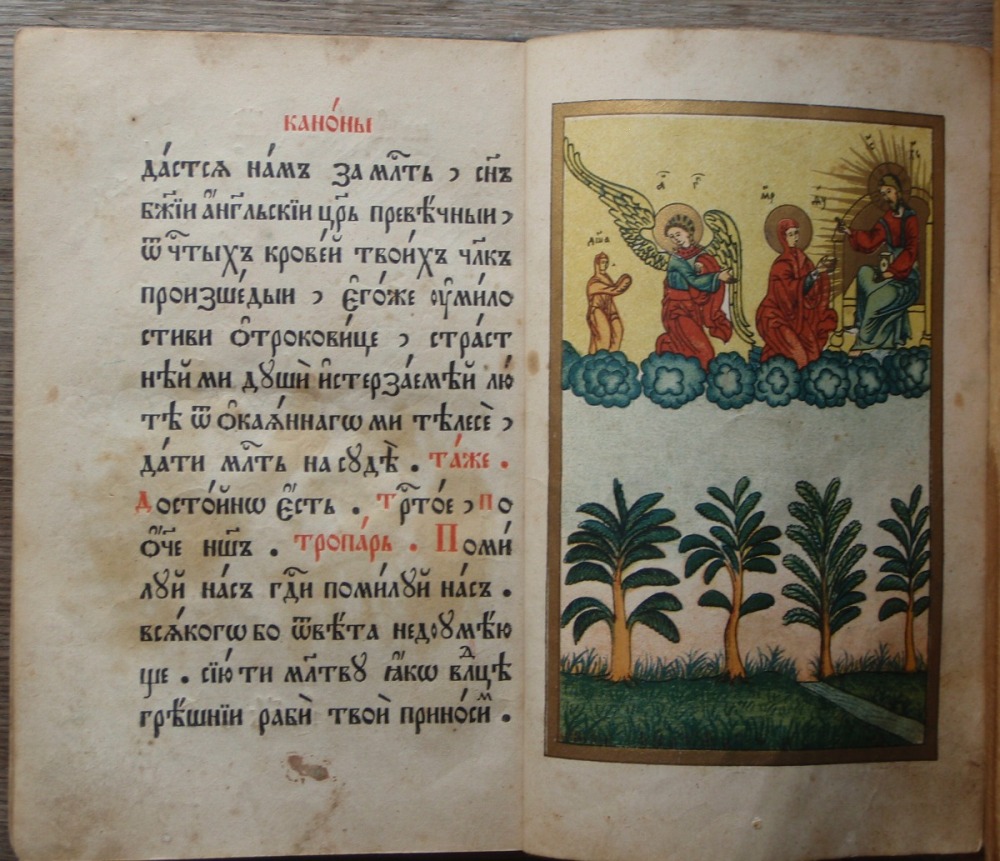 кано́ны
да́стсѧ на́мъ за мл҃ть , сн҃ъ
бж҃їи а҆́нг҃льскїи цр҃ь превѣ́чныи ,
ѿ ч҃тыхъ крове́й твои́хъ чл҃къ
произше́дыи , є҆го́же ᲂу҆мило
стиви ѻ҆трокови́це , стра́ст
нѣй ми дꙋши̏ и҆стерза́емѣй лю́
тѣ ѿ ѻ҆кая́ннагѡ ми тѣлесѐ ,
да́ти мл҃ть на сꙋдѣ̀ . та́же .
Досто́йнѡ є҆́сть . тр҃то́е , по
ѻ҆́ч҃е нш҃ъ . тропа́рь . Поми́
лꙋй на́съ гд҃и поми́лꙋй на́съ .
всѧ́когѡ бо ѿвѣ́та недоумѣ́ю
ще . сїю́ ти мл҃твꙋ ꙗ҆́кѡ влⷣцѣ
грѣ́шнїи рабѝ твоѝ прино́симⷨ .